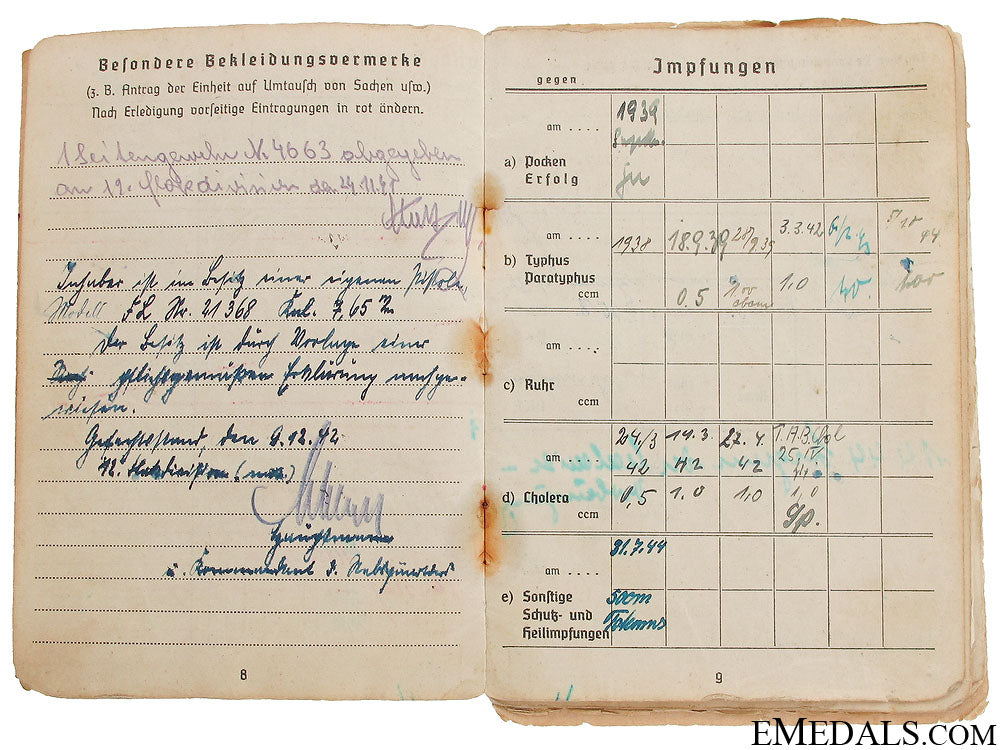 Besondere Bekleidungsvermerke
(z. B. Antrag der Einheit auf Umtausch von Sachen usw.)
Nach Erledigung vorseitige Eintragungen in rot ändern.
1 Seitengewehr Nr 4663 abgegeben
an 12. Flakdivision den 24.11.41
Inhaber ist im Besitz einer eigenen Pistole,
Modell FL Nr. 21368 Kal. 7,65
Der Besitz ist durch Vorlage einer
pflichtgemäßen Erklärung nachge-
wiesen.
Gefechtsstand, den 9.12.42
12. Flakdivision (mot.)
Hauptmann
u. Kommandant d. Stabsquartiers
8
Impfungen
gegen
am .... 1939
a) Pocken
Erfolg Ja
am .... 1938 18.9.39 28/9.39 3.3.42 5 10 44
b) Typhus
Paratyphus
ccm 0,5 1,0
am ....
c) Ruhr
ccm
am .... 24./3 42 14.3. 42 22.4. 42 T.A.B.Chol 25. IV
d) Cholera
ccm 0,5 1.0 1,0 1,0
am .... 31.7.44
e) Sonstige
Schutz- und
Heilimpfungen
9
EMEDALS.COM